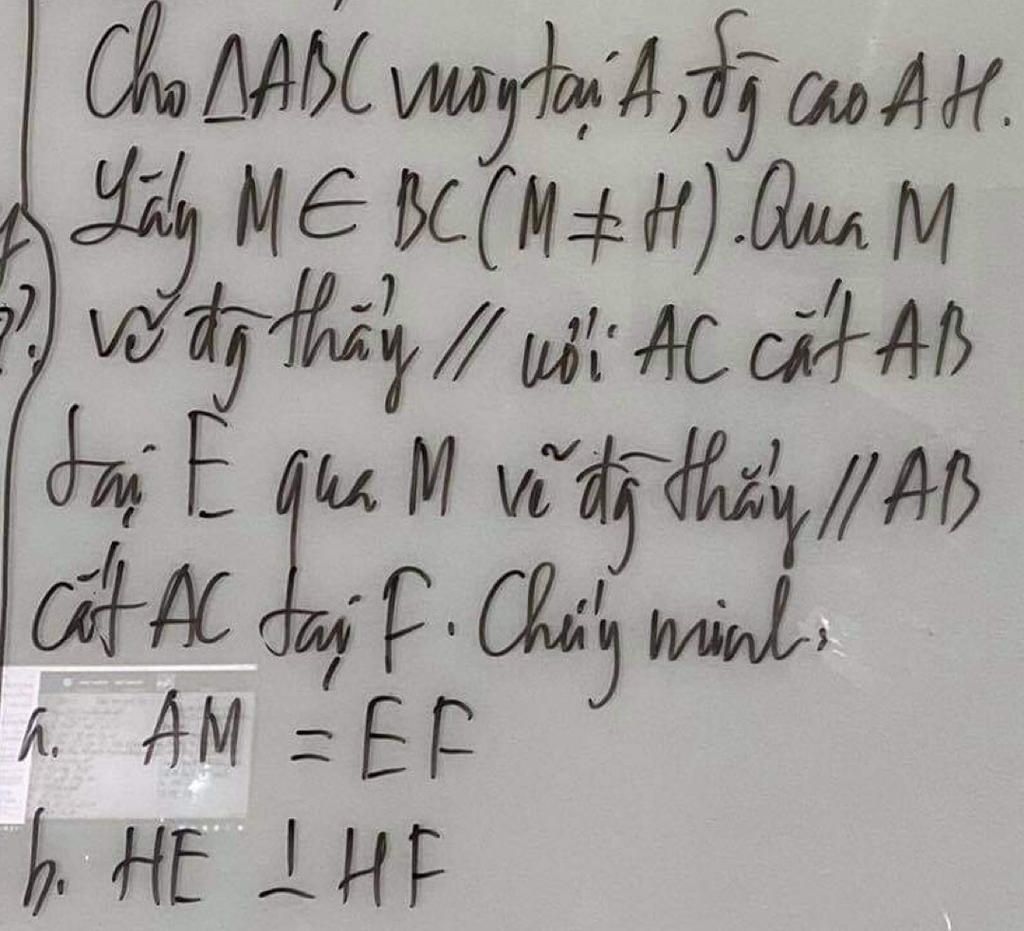 Cho △ABC vuông tại A, đg cao AH.
Lấy M ∈ BC (M ≠ H). Qua M
vẽ đg thẳng // với AC cắt AB
tại E qua M vẽ đg thẳng // AB
cắt AC tại F. Chứng minh:
a. AM = EF
b. HE ⊥ HF